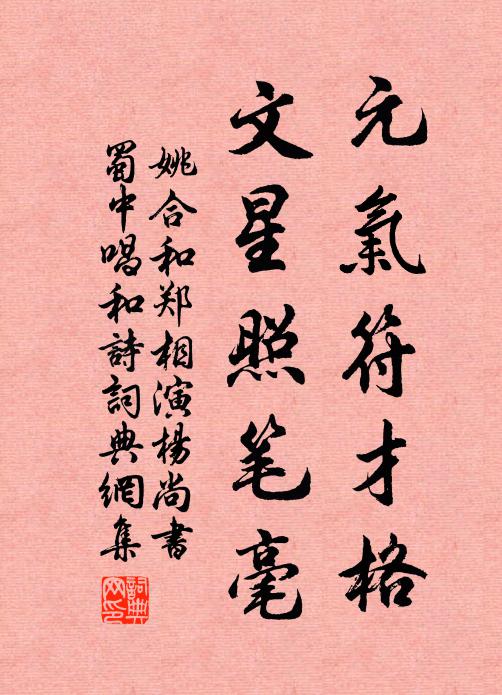 元氣符才格
文星照笔毫
姚合和郑相演楊尚書
蜀中唱和詩詞典網集
詞典网印